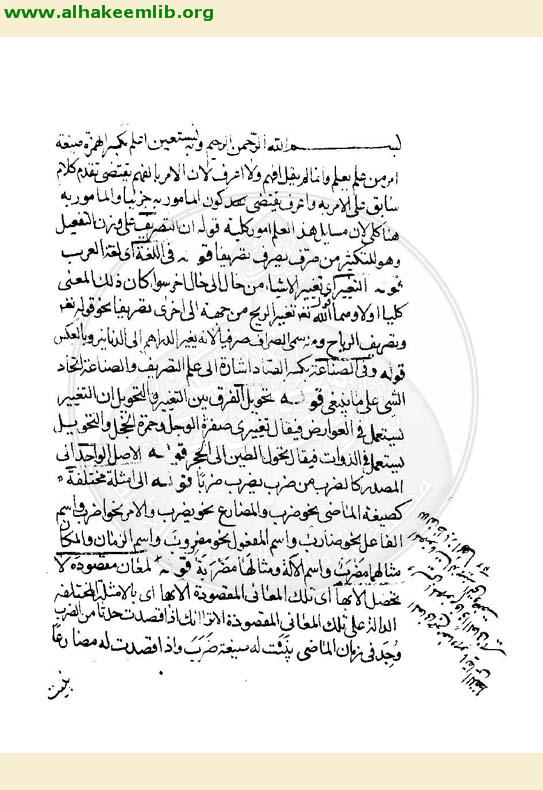 www.alhakeemlib.org
بسم الله الرحمن الرحيم وبه نستعين اعلم بكسر الهمزة صيغة
امر من علم يعلم وانما لم يقل افهم ولا اعرف لان الامر بافهم يقتضى تقدم كلام
سابق على الامر به واعرف يقتضى كون المامور به جزئيا والمامور به
هنا كلى لان مسايل هذا العلم امور كلية قوله ان التصريف على وزن التفعيل
وهو للتكثير من صرف يصرف تصريفا قوله فى اللغة اى لغة العرب
قوله التغيير اى تغيير الاشياء من حال الى حال اخر سواء كان ذلك المعنى
كليا اولا وسما الله تعالى تغيير الريح من جهة الى اخرى تصريفا نحو قوله تعالى
وتصريف الرياح ومنه سمى الصراف صرفيا لانه يغير الدراهم الى الدنانير وبالعكس
قوله وفى الصناعة بكسر الصاد اشارة الى علم التصريف والصناعة اتخاذ
الشى على ما ينبغى قوله تحويل الفرق بين التغيير والتحويل ان التغيير
يستعمل فى العوارض فيقال تغييرى صفرة الوجل وحمرة الخجل والتحويل
يستعمل فى الذوات فيقال تحول الطين الى الحجر قوله الاصل الواحد اى
المصدر كالضرب من ضرب يضرب ضربا قوله الى امثلة مختلفة
كصيغة الماضى نحو ضرب والمضارع نحو يضرب والامر نحو اضرب واسم
الفاعل نحو ضارب واسم المفعول نحو مضروب واسم الزمان والمكان
مثالهما مضرب واسم الالة ومثالها مضربة قوله لمعان مقصودة لا
تحصل الا بها اى تلك المعانى المقصودة الا بها اى بالامثلة المختلفة
الدالة على تلك المعانى المقصودة الا ترى انك اذا قصدت حدثا من الضرب
وجد فى زمان الماضى بنيت له صيغة ضرب واذا قصدت له مضارعا
بنيت